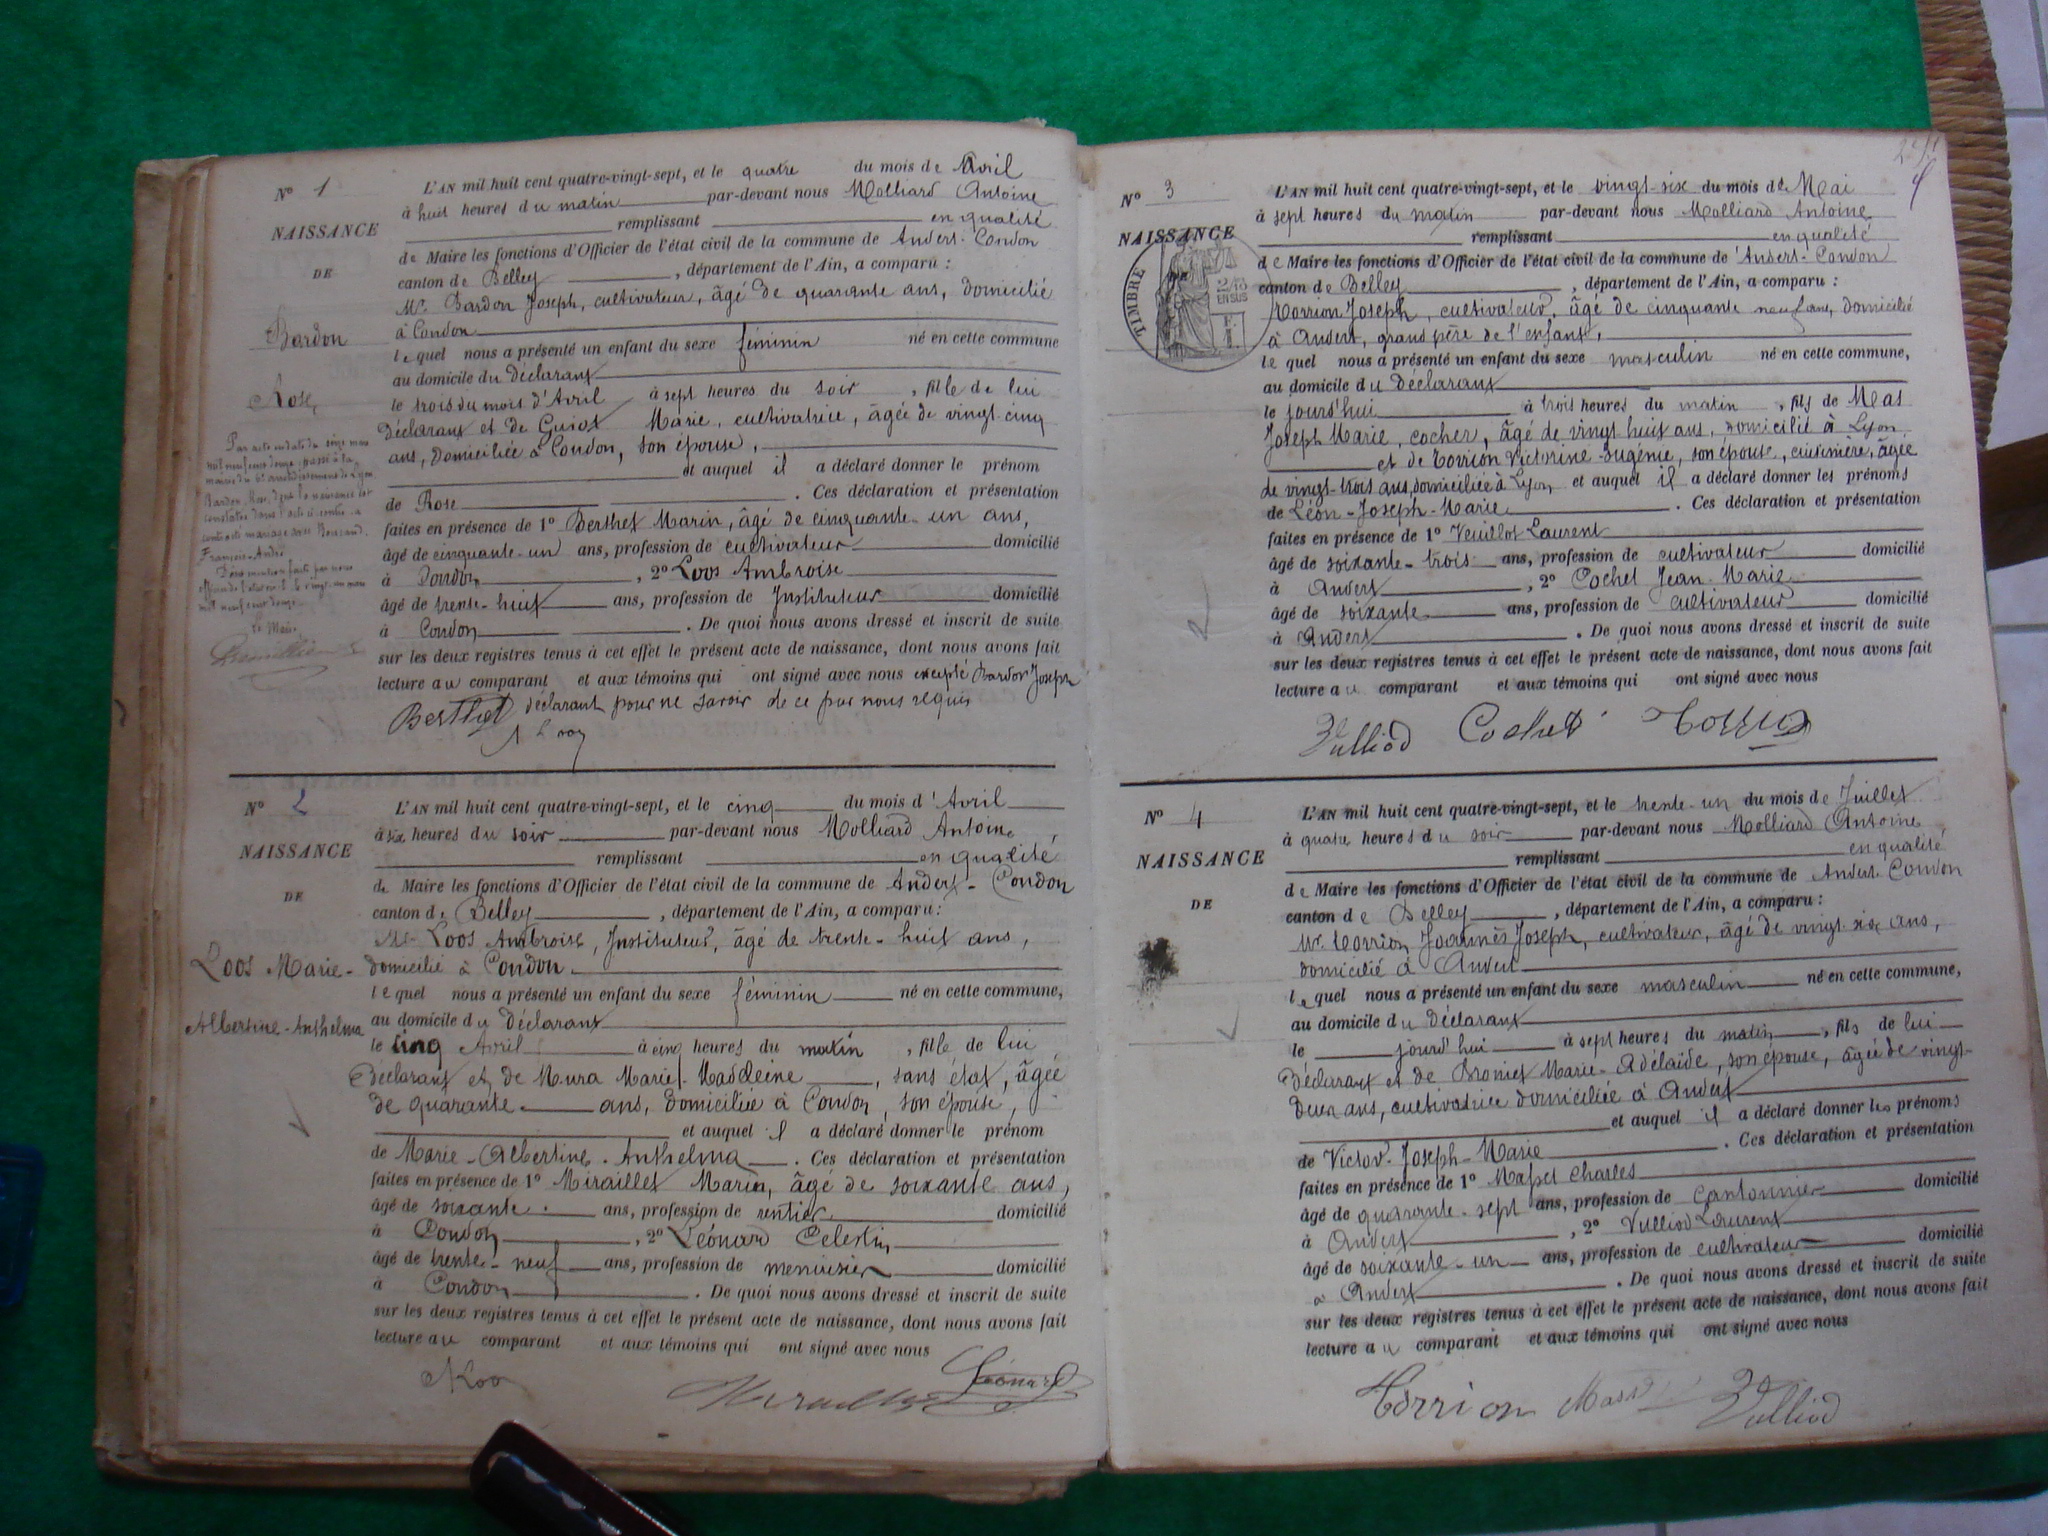 N° 1
NAISSANCE
DE
Bardon
Rose,
L'AN mil huit cent quatre-vingt-sept, et le quatre du mois de Avril
à huit heures du matin par-devant nous Molliard Antoine
remplissant en qualité
de Maire les fonctions d'Officier de l'état civil de la commune de Andert-Condon
canton de Belley, département de l'Ain, a comparu :
Mr. Bardon Joseph, cultivateur, âgé de quarante ans, domicilié
à Condon
le quel nous a présenté un enfant du sexe féminin né en cette commune
au domicile du Déclarant
le trois du mois d'Avril à sept heures du soir, fille de lui
Déclarant et de Guiot Marie, cultivatrice, âgée de vingt-cinq
ans, domiciliée à Condon, son épouse,
et auquel il a déclaré donner le prénom
de Rose. Ces déclaration et présentation
faites en présence de 1° Berthet Marin, âgé de cinquante-un ans,
âgé de cinquante-un ans, profession de cultivateur domicilié
à Condon, 2° Loos Ambroise
âgé de trente-huit ans, profession de Instituteur domicilié
à Condon. De quoi nous avons dressé et inscrit de suite
sur les deux registres tenus à cet effet le présent acte de naissance, dont nous avons fait
lecture au comparant et aux témoins qui ont signé avec nous excepté Bardon Joseph
déclarant pour ne savoir de ce par nous requis
Berthet
Par acte en date du seize mars
mil neuf cent douze, passé à la
mairie du 6e arrondissement de Lyon
Bardon Rose, dont la naissance est
constatée dans l'acte ci-contre, a
contracté mariage avec
François-André
le vingt-un mars
mil neuf cent douze
Le Maire
N° 2
NAISSANCE
DE
Loos Marie-
Albertine-Anthelma
L'AN mil huit cent quatre-vingt-sept, et le cinq du mois d'Avril
à six heures du soir par-devant nous Molliard Antoine,
remplissant en qualité
de Maire les fonctions d'Officier de l'état civil de la commune de Andert-Condon
canton de Belley, département de l'Ain, a comparu :
Mr Loos Ambroise, Instituteur, âgé de trente-huit ans,
domicilié à Condon
le quel nous a présenté un enfant du sexe féminin né en cette commune,
au domicile du Déclarant
le cinq Avril à cinq heures du matin, fille de lui
Déclarant et de Mura Marie-Madeleine, sans état, âgée
de quarante ans, domiciliée à Condon, son épouse,
et auquel il a déclaré donner le prénom
de Marie-Albertine-Anthelma. Ces déclaration et présentation
faites en présence de 1° Miraillet Marin, âgé de soixante ans,
âgé de soixante ans, profession de rentier domicilié
à Condon, 2° Léonard Célestin
âgé de trente-neuf ans, profession de menuisier domicilié
à Condon. De quoi nous avons dressé et inscrit de suite
sur les deux registres tenus à cet effet le présent acte de naissance, dont nous avons fait
lecture au comparant et aux témoins qui ont signé avec nous
Léonard
N° 3
NAISSANCE
DE
TIMBRE
EN SUS
L'AN mil huit cent quatre-vingt-sept, et le vingt-six du mois de Mai
à sept heures du matin par-devant nous Molliard Antoine
remplissant en qualité
de Maire les fonctions d'Officier de l'état civil de la commune de Andert-Condon
canton de Belley, département de l'Ain, a comparu :
Torrion Joseph, cultivateur, âgé de cinquante neuf ans, domicilié
à Andert, grand père de l'enfant,
le quel nous a présenté un enfant du sexe masculin né en cette commune,
au domicile du Déclarant
le jourd'hui à trois heures du matin, fils de Mas
Joseph Marie, cocher, âgé de vingt-huit ans, domicilié à Lyon
et de Torrion Victorine-Eugénie, son épouse, cuisinière, âgée
de vingt-trois ans, domiciliée à Lyon et auquel il a déclaré donner les prénoms
de Léon-Joseph-Marie. Ces déclaration et présentation
faites en présence de 1° Veuillot Laurent
âgé de soixante-trois ans, profession de cultivateur domicilié
à Andert, 2° Cochet Jean-Marie
âgé de soixante ans, profession de cultivateur domicilié
à Andert. De quoi nous avons dressé et inscrit de suite
sur les deux registres tenus à cet effet le présent acte de naissance, dont nous avons fait
lecture au comparant et aux témoins qui ont signé avec nous
Vulliod Cochet Torrion
N° 4
NAISSANCE
DE
L'AN mil huit cent quatre-vingt-sept, et le trente-un du mois de Juillet
à quatre heures du soir par-devant nous Molliard Antoine
remplissant en qualité
de Maire les fonctions d'Officier de l'état civil de la commune de Andert-Condon
canton de Belley, département de l'Ain, a comparu :
Mr. Torrion Joannès Joseph, cultivateur, âgé de vingt-six ans,
domicilié à Andert
le quel nous a présenté un enfant du sexe masculin né en cette commune,
au domicile du Déclarant
le jourd'hui à sept heures du matin, fils de lui
Déclarant et de Bronict Marie-Adélaïde, son épouse, âgée de vingt-
deux ans, cultivatrice domiciliée à Andert
et auquel il a déclaré donner les prénoms
de Victor-Joseph-Marie. Ces déclaration et présentation
faites en présence de 1° Masset Charles
âgé de quarante-sept ans, profession de Cantonnier domicilié
à Andert, 2° Vulliod Laurent
âgé de soixante-un ans, profession de cultivateur domicilié
à Andert. De quoi nous avons dressé et inscrit de suite
sur les deux registres tenus à cet effet le présent acte de naissance, dont nous avons fait
lecture au comparant et aux témoins qui ont signé avec nous
Torrion Masset Vulliod